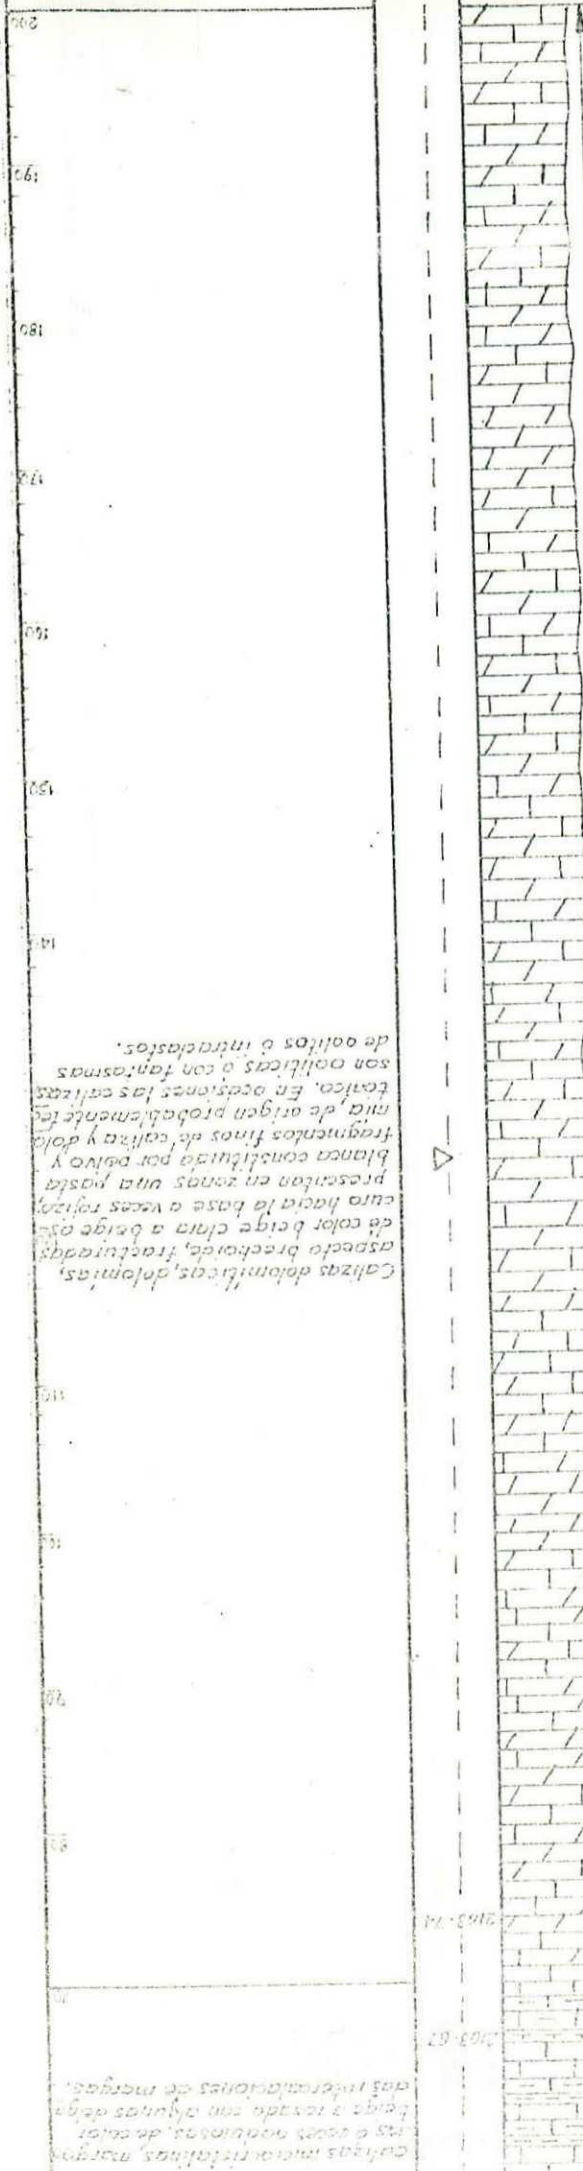 Calizas microcristalinas, margo
sas a veces nodulosas, de color
beige a rosado con algunas delga
das intercalaciones de margas.
2163-67
70
2163-74
80
90
100
110
Calizas dolomíticas, dolomias,
aspecto brechoide, fracturadas
de color beige claro a beige os
curo hacia la base a veces rojizo,
presentan en zonas una pasta
blanca constituida por polvo y
fragmentos finos de caliza y dolo
mia, de origen probablemente tec
tónico. En ocasiones las calizas
son oolíticas ó con fantasmas
de oolitos ó intraclastos.
140
150
160
170
180
190
200